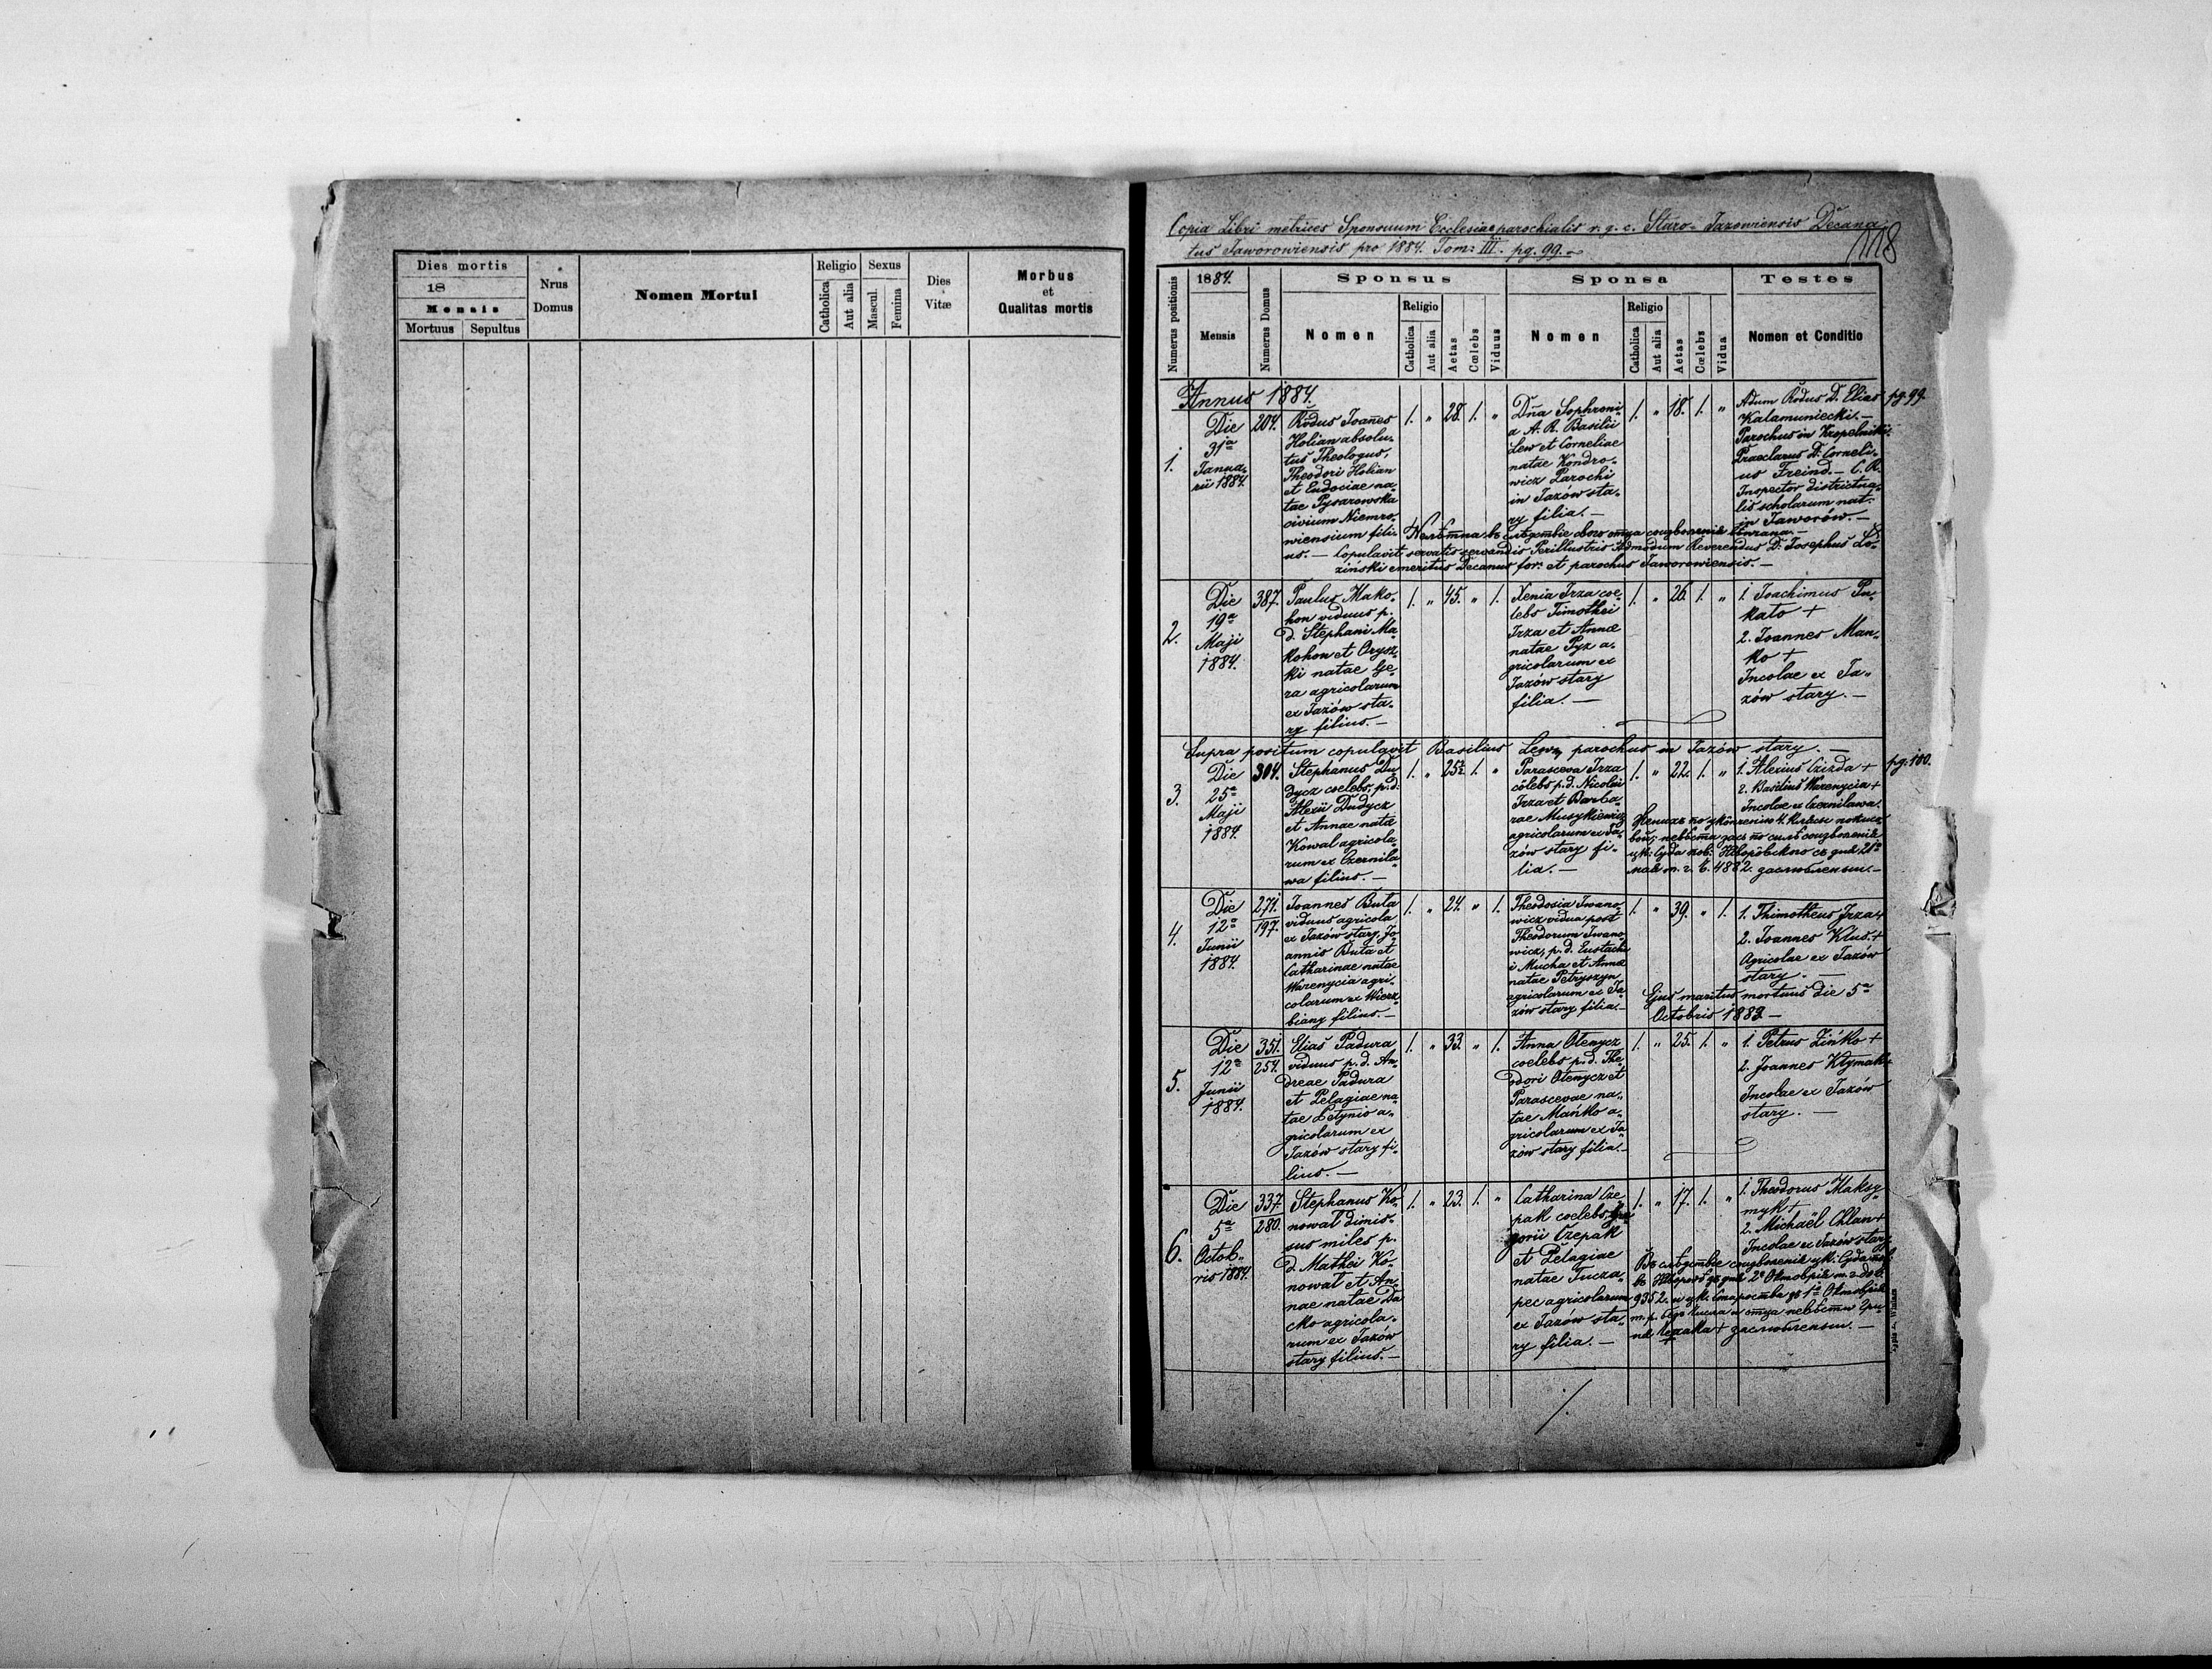 Dies mortis
18
Mensis
Mortuus Sepultus
Nrus
Domus
Nomen Mortui
Religio
Catholica
Aut alia
Sexus
Mascul.
Femina
Dies
Vitæ
Morbus
et
Qualitas mortis
Copia Libri metrices Sponsuum Ecclesiae parochialis r. g. c. Staro-Jazowiensis Decana-
tus Jaworowiensis pro 1884. Tom: III. pg. 99.
118
Numerus positionis
1884.
Mensis
Numerus Domus
Sponsus
Nomen
Religio
Catholica
Aut alia
Aetas
Cœlebs
Viduus
Sponsa
Nomen
Religio
Catholica
Aut alia
Aetas
Cœlebs
Vidua
Testes
Nomen et Conditio
Annus 1884.
1.
Die
31a
Janua-
rii 1884.
204.
Rodus Joanes
Holian absolu-
tus Theologus,
Theodori Holian
et Eudociae na-
tae Pysarowska
civium Niemro-
wiensium fili-
us. —
1. „ 28. 1. „
Dna Sophroni-
a A. R. Basilii
Lew et Corneliae
natae Kondro-
wicz Parochi
in Jazów sta-
ry filia. —
1. „ 18. 1. „
Adum Rodus D. Elias
Kalamuniecki. —
Parochus in
Praeclarus D. Corneli-
us Freind. — C. R.
Inspector districtua-
lis scholarum nat.
in Jaworów. —
pg. 99.
Copulavit servatis servandis Perillustris Admodum Reverendus D. Josephus Ło-
ziński emeritus Decanus for: et parochus Jaworowiensis. —
2.
Die
19a
Maji
1884.
387.
Paulus Mako-
hon viduus p.
d. Stephani Ma-
kohon et Orysz-
ki natae Ge-
ra agricolarum
ex Jazów sta-
ry filius. —
1. „ 45. „ 1.
Xenia Irza coe-
lebs Timothei
Irza et Annae
natae Pyz a-
gricolarum ex
Jazów stary
filia. —
1. „ 26. 1. „
1. Joachimus Pu-
kało +
2. Joannes Man-
ko +
Incolae ex Ja-
zów stary. —
Supra positum copulavit Basilius Lew, parochus in Jazów stary. —
3.
Die
25a
Maji
1884.
304.
Stephanus Du-
dycz coelebs, p. d.
Alexii Dudycz
et Annae natae
Kowal agricola-
rum ex Czernila-
wa filius. —
1. „ 25½ 1. „
Parasceva Irza
cölebs p. d. Nicolai
Irza et Barba-
rae Musykiewicz
agricolarum ex Ja-
zów stary fi-
lia. —
1. „ 22. 1. „
1. Alexius +
2. Basilius Warenycia +
Incolae ex Czernilawa.
pg. 100.
4.
Die
12a
Junii
1884.
271.
197.
Joannes Buta
viduus agricola
ex Jazów stary, Jo-
annis Buta et
Catharinae natae
Warenycia agri-
colarum ex Wierz-
biany filius. —
1. „ 24. „ 1.
Theodosia Iwano-
wicz vidua post
Theodorum Iwano-
wicz, p. d. Eustachi-
i Mucha et Annae
natae Petryszyn
agricolarum ex Ja-
zów stary filia. —
1. „ 39. „ 1.
1. Thimotheus Irza +
2. Joannes Kłus +
Agricolae ex Jazów
stary. —
Ejus maritus mortuus die 5a
Octobris 1883 —
5.
Die
12a
Junii
1884.
351.
254.
Elias Padura
viduus p. d. An-
dreae Padura
et Pelagiae na-
tae Letynio a-
gricolarum ex
Jazów stary fi-
lius. —
1. „ 33. „ 1.
Anna Otenycz
coelebs p. d. The-
odori Otenycz et
Parascevae na-
tae Mańko a-
gricolarum ex Ja-
zów stary filia. —
1. „ 25. 1. „
1. Petrus Zińko +
2. Joannes Kłymak +
Incolae ex Jazów
stary. —
6.
Die
5a
Octob-
ris 1884.
337.
280.
Stephanus Ko-
nowal dimis-
sus miles p.
d. Mathei Ko-
nowal et An-
nae natae Da-
cko agricola-
rum ex Jazów
stary filius. —
1. „ 23. 1. „
Catharina Cze-
pak coelebs, Gre-
gorii Czepak
et Pelagiae
natae Tucza-
pec agricolarum
ex Jazów sta-
ry filia. —
1. „ 17. 1. „
1. Theodorus Maksy-
myk +
2. Michaël Chlan +
Incolae ex Jazów stary